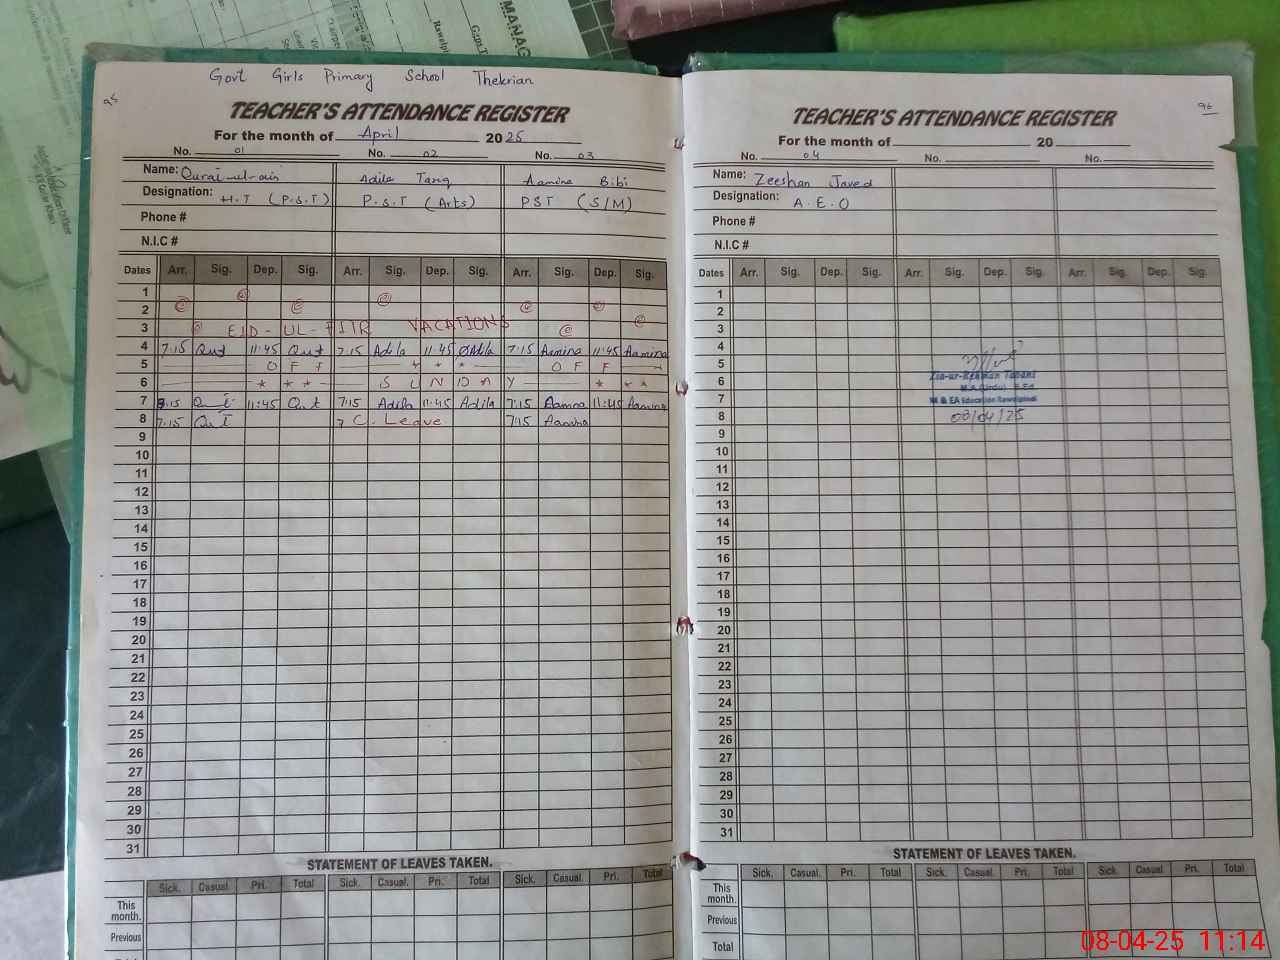 MANAG
Govt Girls Primary School Thekrian
95
TEACHER'S ATTENDANCE REGISTER
For the month of April 2025
No. 01 No. 02 No. 03
Name: Qurat-ul-ain Adila Tariq Aamina Bibi
Designation: H.T (P.S.T) P.S.T (Arts) PST (S/M)
Phone #
N.I.C #
Dates Arr. Sig. Dep. Sig. Arr. Sig. Dep. Sig. Arr. Sig. Dep. Sig.
1
2
3 EID-UL-FITR VACATIONS
4 7:15 Qut 11:45 Qut 7:15 Adila 11:45 Adila 7:15 Aamina 11:45 Aamina
5 OFF * * * OFF
6 * * * SUNDAY * * *
7 7:15 Qut 11:45 Qut 7:15 Adila 11:45 Adila 7:15 Aamna 11:45 Aamna
8 7:15 Qut C. Leave 7:15 Aamina
9
10
11
12
13
14
15
16
17
18
19
20
21
22
23
24
25
26
27
28
29
30
31
STATEMENT OF LEAVES TAKEN.
Sick. Casual. Pri. Total Sick. Casual. Pri. Total Sick. Casual. Pri. Total
This month.
Previous
Total
96
TEACHER'S ATTENDANCE REGISTER
For the month of 20
No. 04 No. No.
Name: Zeeshan Javed
Designation: A.E.O
Phone #
N.I.C #
Dates Arr. Sig. Dep. Sig. Arr. Sig. Dep. Sig. Arr. Sig. Dep. Sig.
1
2
3
4
5
6 Zia-ur-Rehman Tabani
M.A (Urdu)
7 M & EA Education Rawalpindi
8 08/04/25
9
10
11
12
13
14
15
16
17
18
19
20
21
22
23
24
25
26
27
28
29
30
31
STATEMENT OF LEAVES TAKEN.
Sick. Casual. Pri. Total Sick. Casual. Pri. Total Sick. Casual. Pri. Total
This month.
Previous
Total
08-04-25 11:14